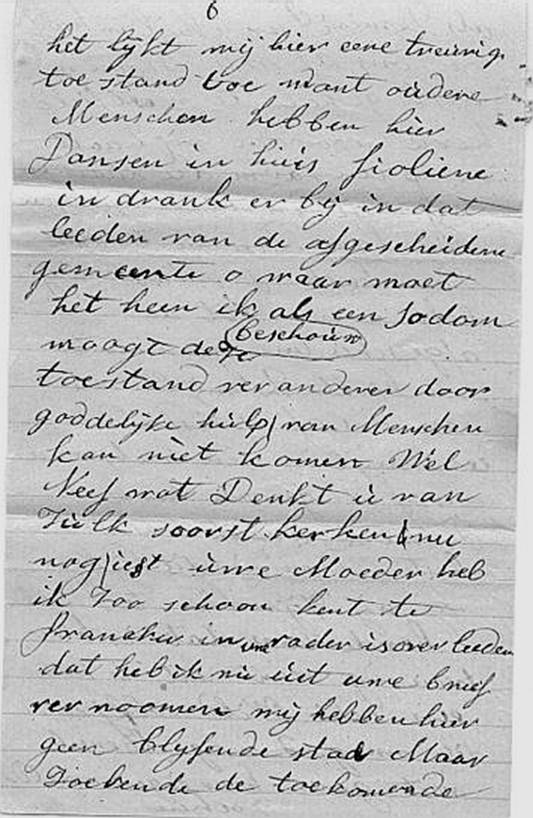 6
het lijkt mij hier eene treurige
toestand toe want oudere
Menschen hebben hier
Dansen in huis fioliene
in drank er bij in dat
leeden van de afgescheidene
gemeente o waar moet
het heen ik als een Sodom
beschouw
moogt deze
toestand veranderen door
goddelijke hulp van Menschen
kan niet komen Wel
Neef wat Denkt u van
Zulk soorst kerken nu
nog iest uwe Moeder heb
ik zoo schoon kent te
Franeker in uwe vader is overleeden
dat heb ik nu uit uwe brief
vernoomen mij hebben hier
geen blyfende stad Maar
Zoekende de toekomende